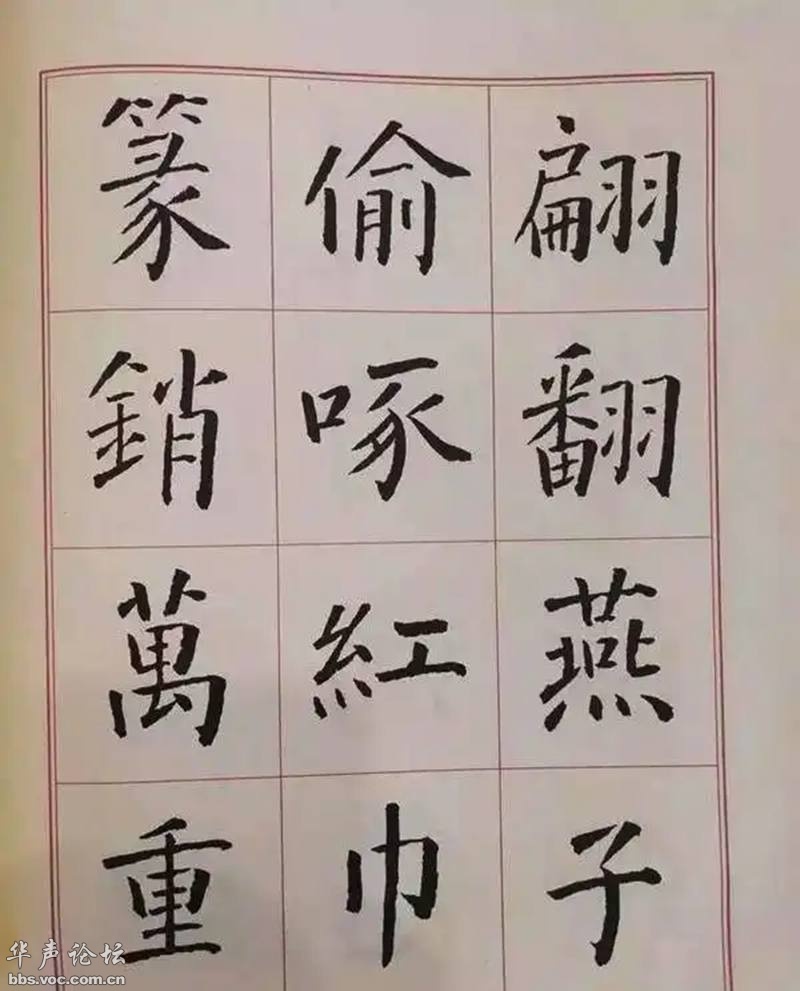 翩翻燕子
偷啄紅巾
篆銷萬重
华声论坛
bbs.voc.com.cn